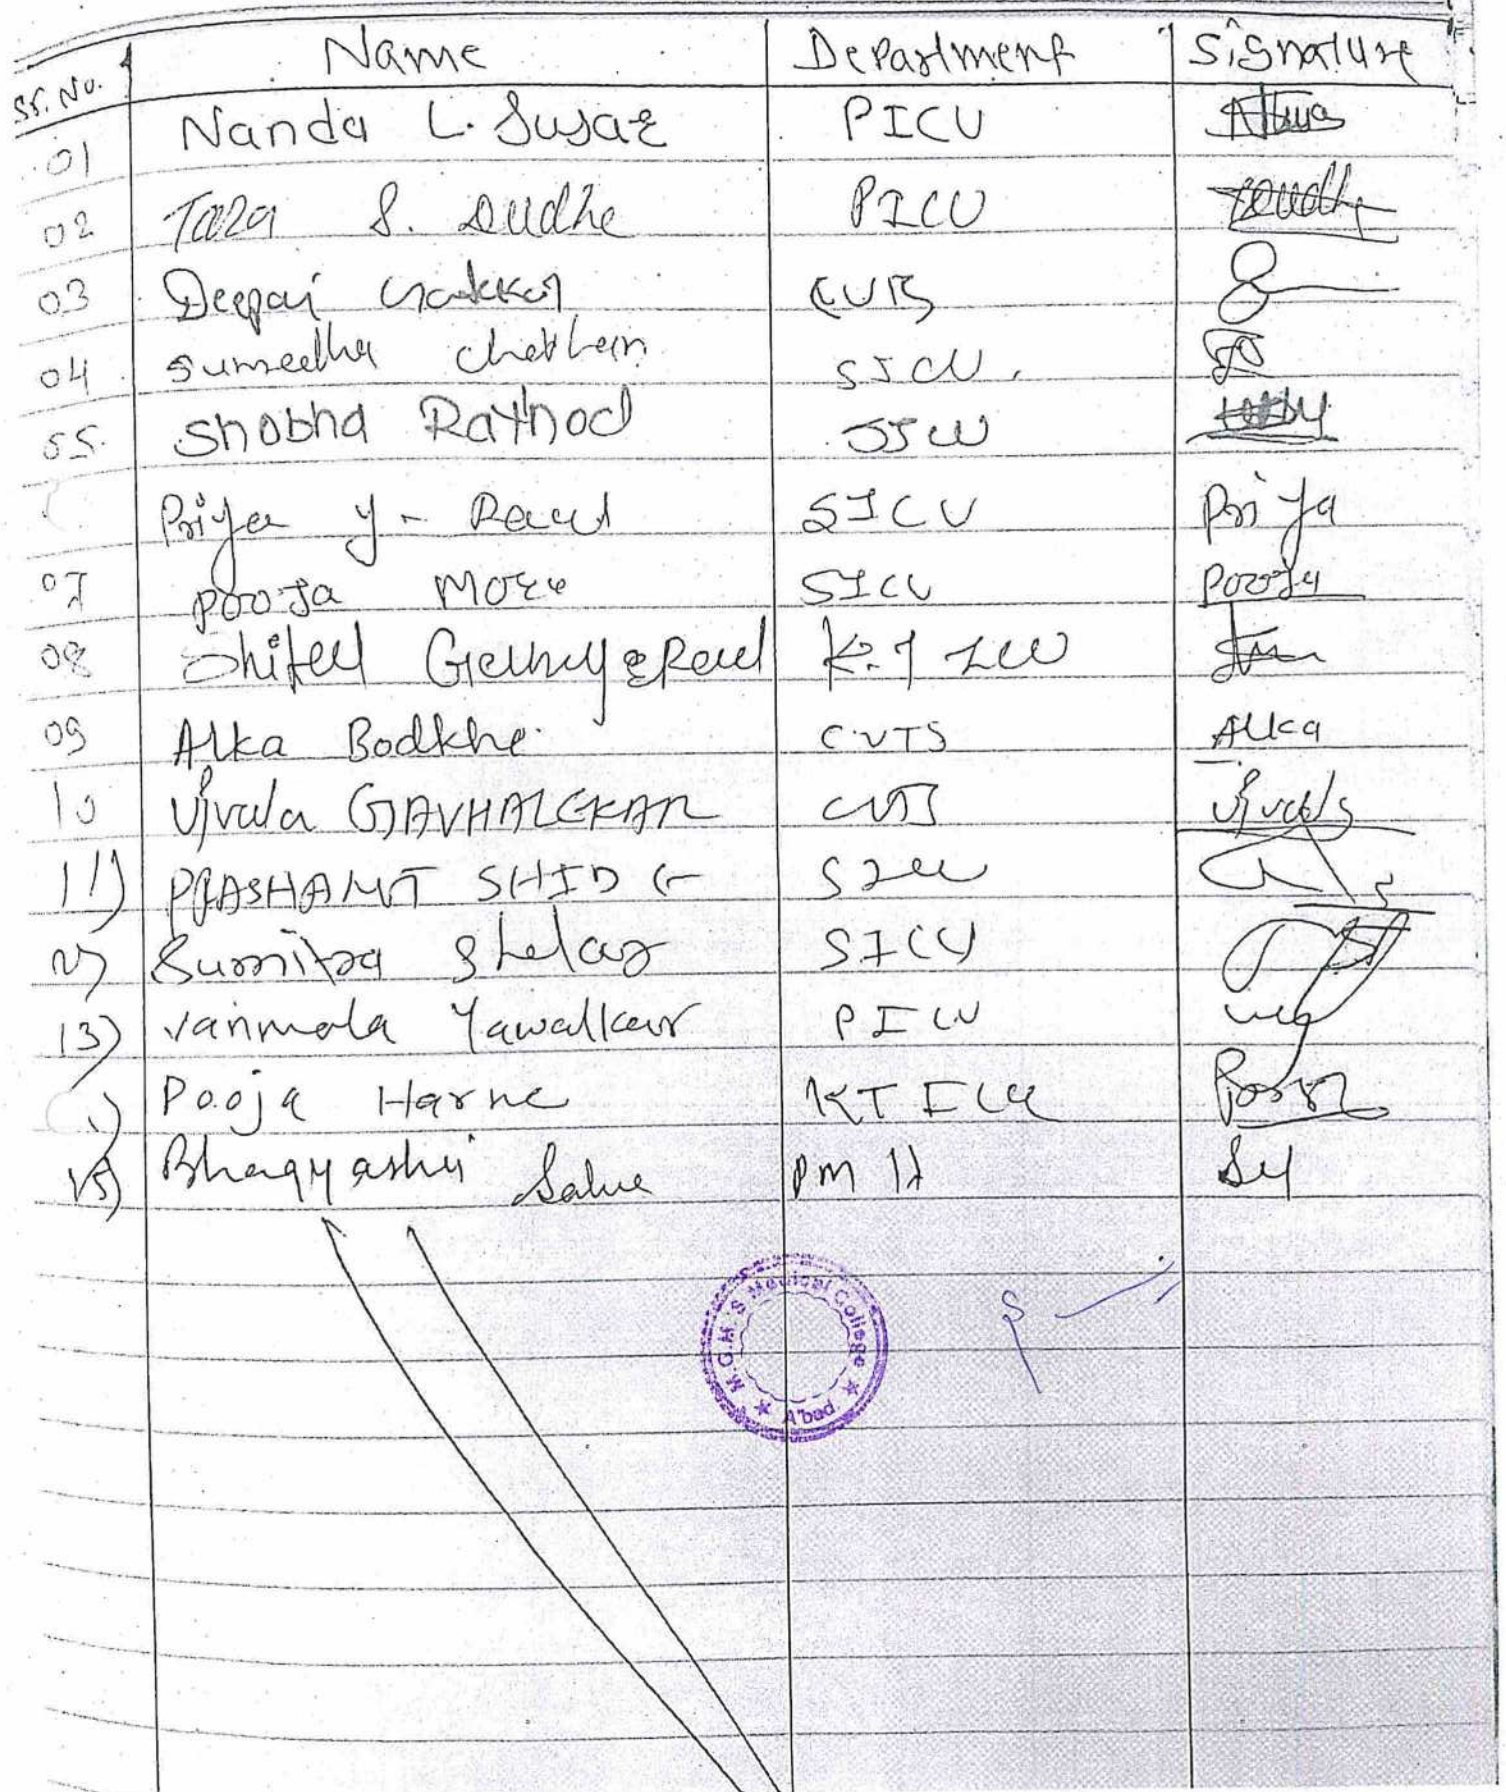 Sr. No. Name Department Signature
01 Nanda L. Susar PICU
02 Tara S. Dudhe PICU Dudhe
03 Deepai CVTS
04 Sumedha SICU
05. Shobha Rathod SICU
Priya Y - Raut SICU Priya
07 Pooja More SICU Pooja
08 Shital K.T ICU
09 Alka Bodkhe CVTS Alka
10 Ujvala GAVHALEKAR CVTS Ujvala
11) PRASHANT SHIDE SICU
12) Sumitra Shelar SICU
13) Vanmala Yawalkar PICU
Pooja Harne KT ICU
15) Bhagyashri Salve
M.G.M.'S Medical College
A'bad